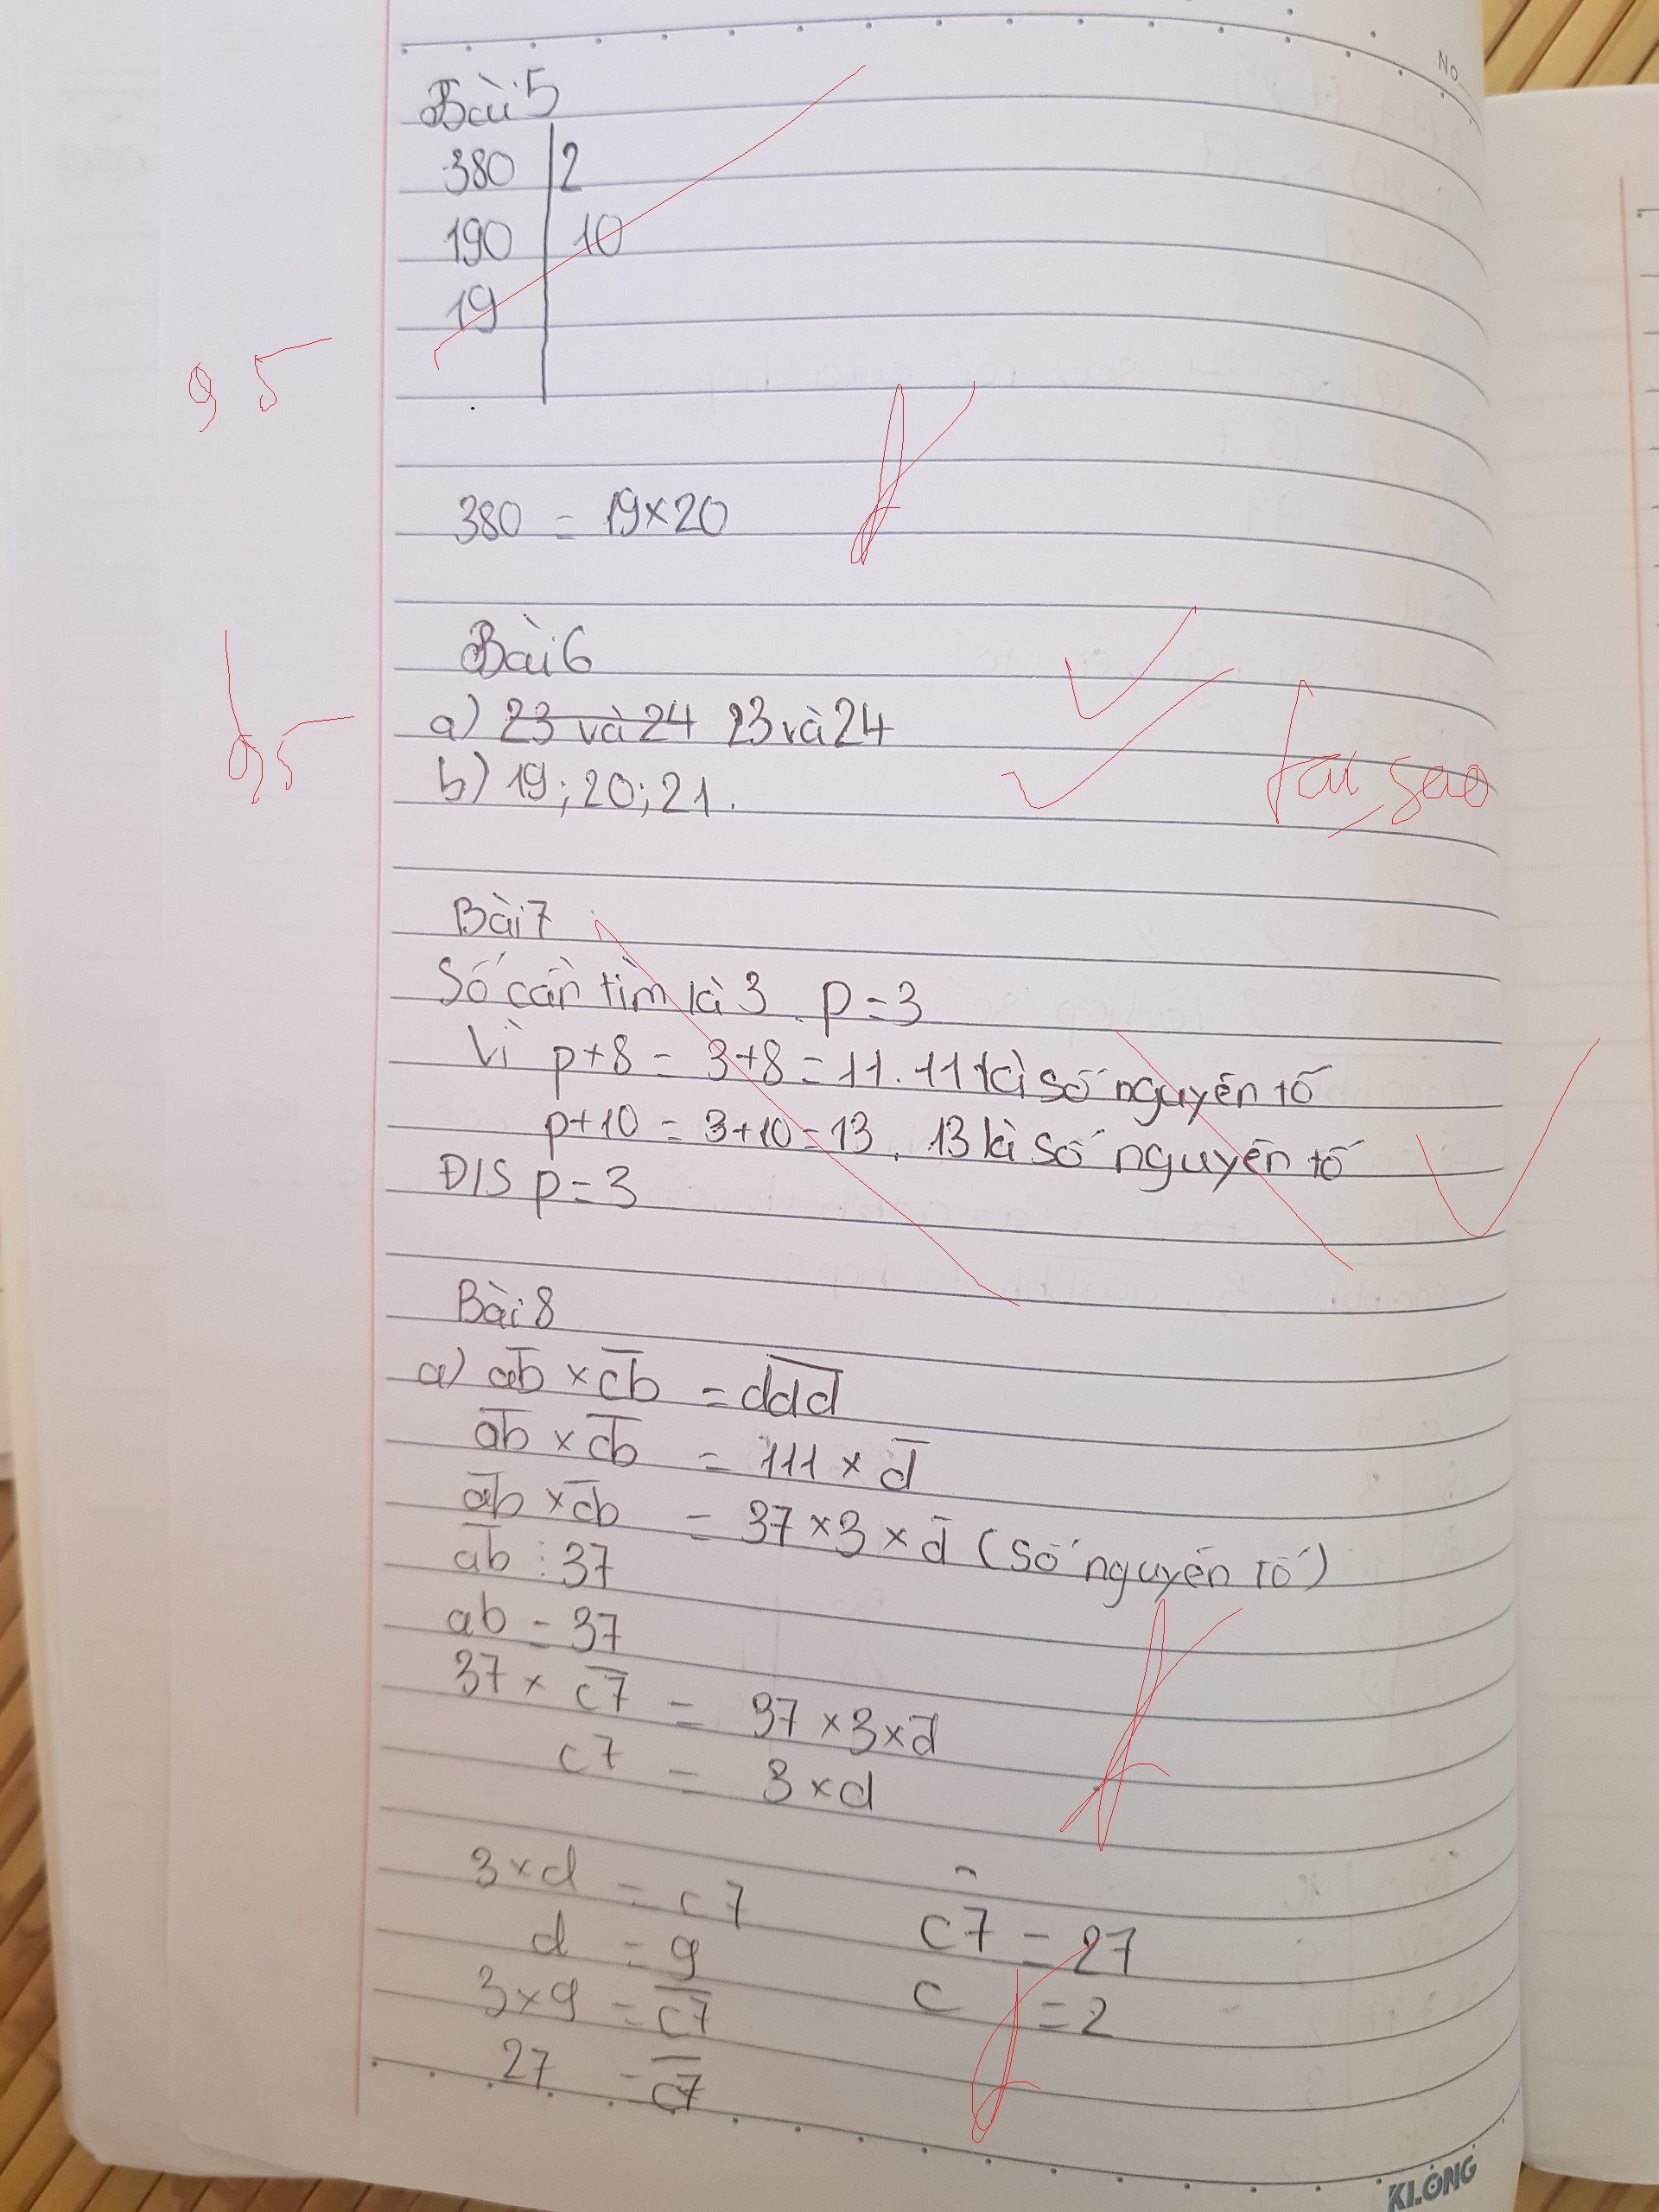 No
Bài 5
380 | 2
190 | 10
19
9 5
380 = 19×20
Bài 6
a) 23 và 24 23 và 24
b) 19; 20; 21.
tại sao
9,5
Bài 7
Số cần tìm là 3. p = 3
Vì p+8 = 3+8 = 11. 11 là số nguyên tố
p+10 = 3+10 = 13. 13 là số nguyên tố
Đ/S p = 3
Bài 8
a) a̅b̅ × c̅b̅ = d̅d̅d̅
a̅b̅ × c̅b̅ = 111 × d̅
a̅b̅ × c̅b̅ = 37 × 3 × d̅ (số nguyên tố)
a̅b̅ ⋮ 37
ab = 37
37 × c̅7̅ = 37 × 3 × d̅
c7 = 3 × d
3 × d = c7
d = 9
3 × 9 = c̅7̅
27 = c̅7̅
c7 = 27
c = 2
KLONG